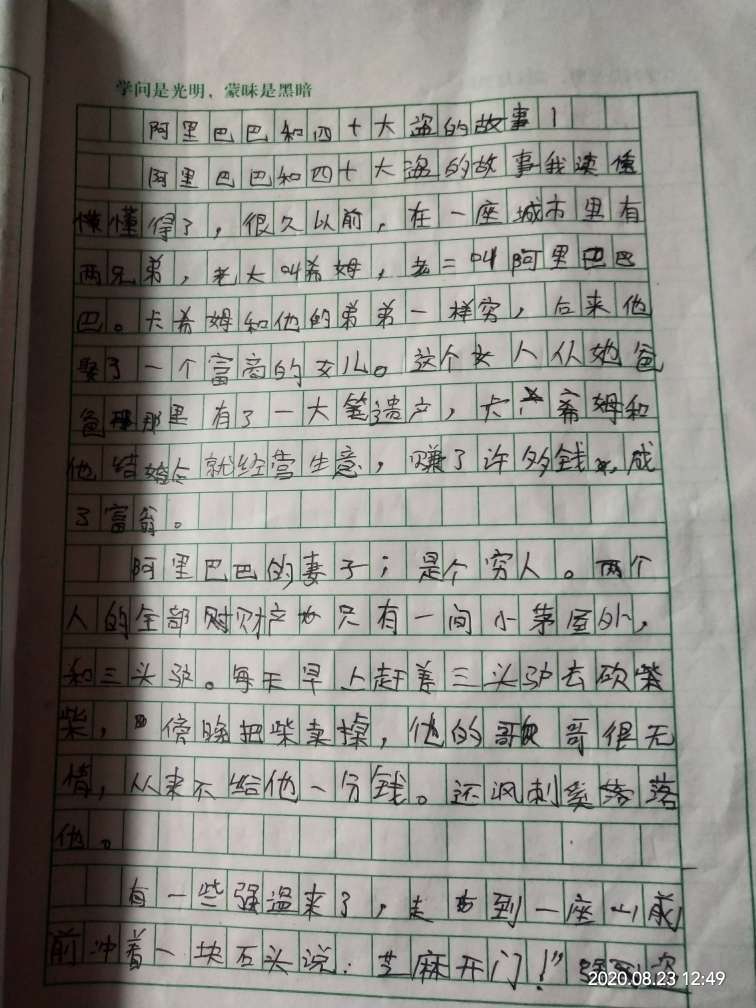 学问是光明，蒙昧是黑暗
阿里巴巴和四十大盗的故事1
阿里巴巴和四十大盗的故事我读懂
懂得了，很久以前，在一座城市里有
两兄弟，老大叫希姆，老二叫阿里巴
巴。卡希姆和他的弟弟一样穷，后来他
娶了一个富商的女儿。这个女人从她爸
爸那里有了一大笔遗产，卡希姆和
他结婚后就经营生意，赚了许多钱，成
了富翁。
阿里巴巴的妻子；是个穷人。两个
人的全部财产只有一间小茅屋外，
和三头驴。每天早上赶着三头驴去砍柴
柴，傍晚把柴卖掉，他的哥哥很无
情，从来不给他一分钱。还讽刺奚落落
他。
有一些强盗来了，走到一座山前
前冲着一块石头说：芝麻开门！”
2020.08.23 12:49